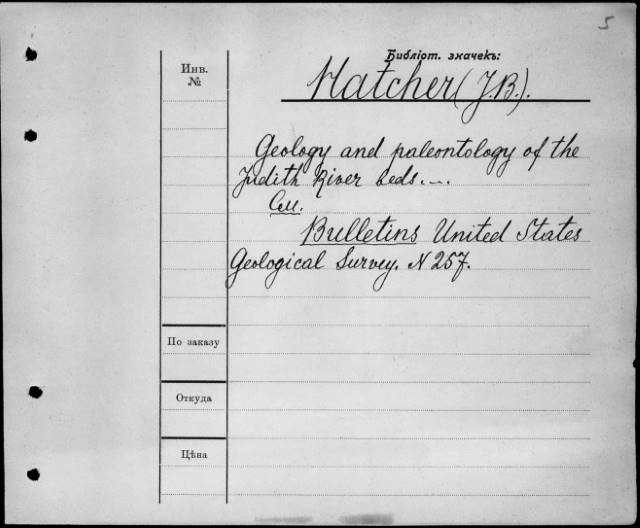 5
Библіот. значекъ:
Инв.
№
Hatcher (J.B.).
Geology and paleontology of the
Judith River beds....
См.
Bulletins United States
Geological Survey. N 257.
По заказу
Откуда
Цѣна